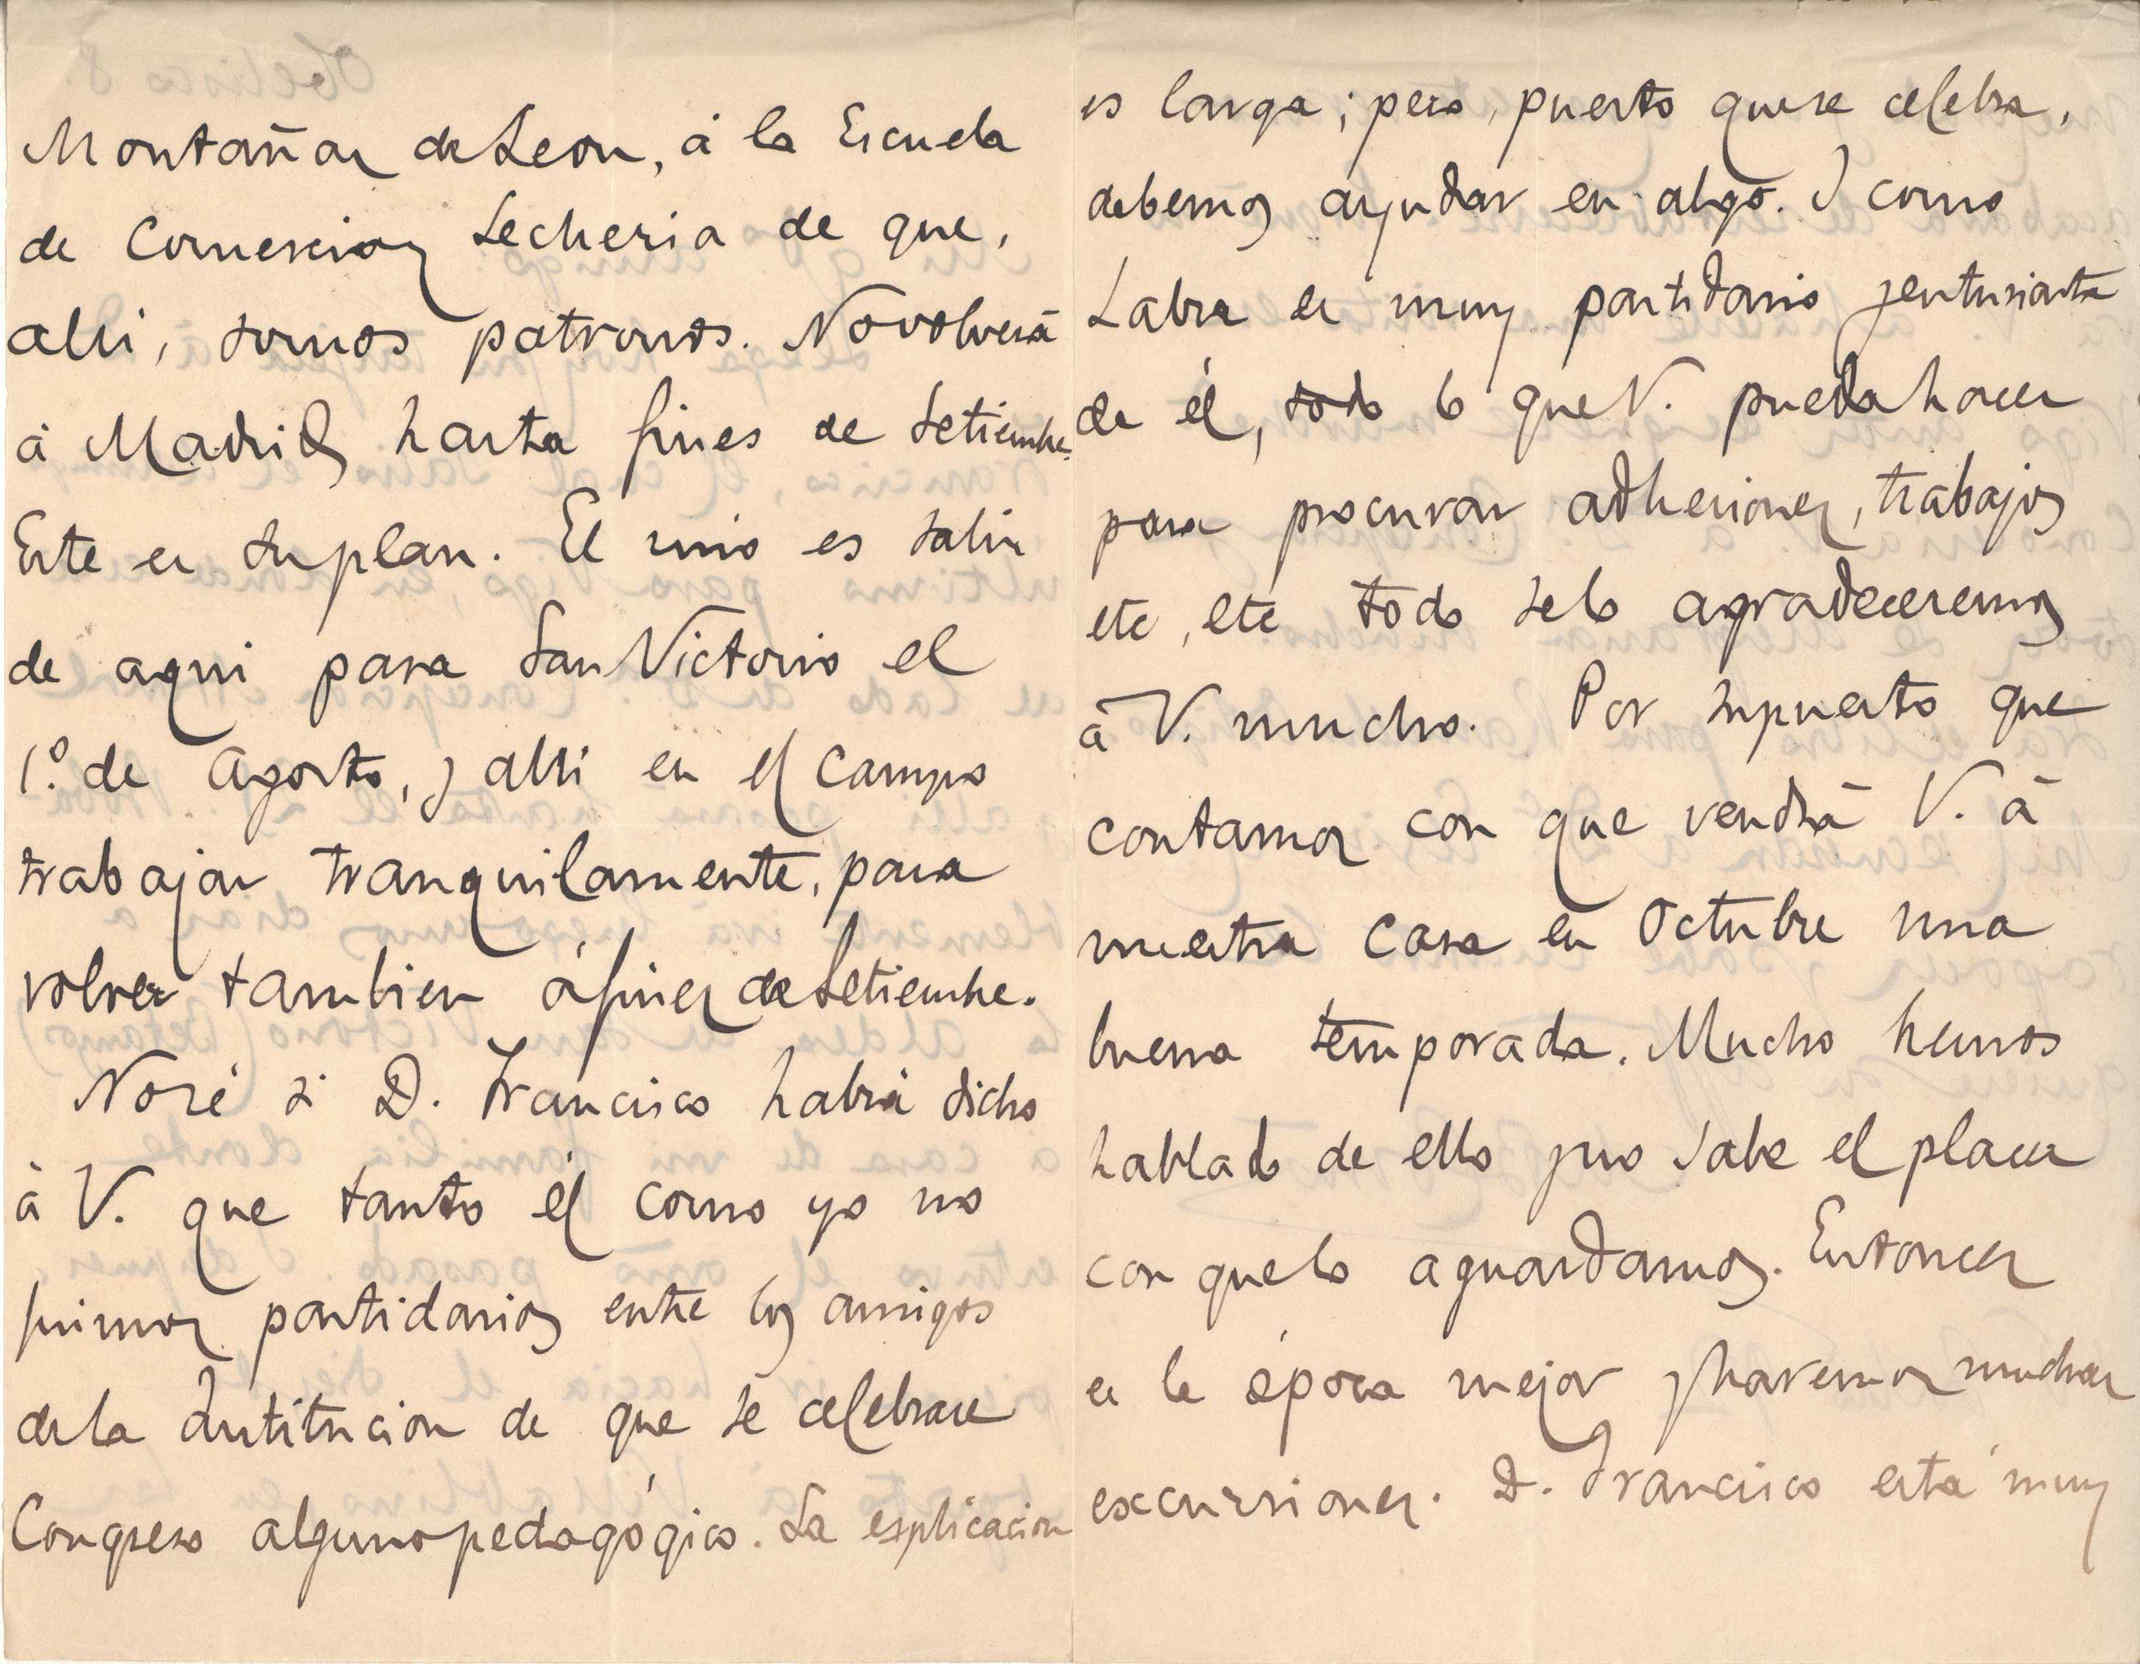 Montañas de Leon, á la Escuela
de Comercio y Lecheria de que,
alli, somos patronos. No volverá
á Madrid hasta fines de Setiembre.
Este es su plan. El mio es salir
de aqui para San Victorio el
1.º de Agosto, y alli en el campo
trabajar tranquilamente, para
volver tambien á fines de Setiembre.
No sé si D. Francisco habrá dicho
á V. que tanto él como yo no
fuimos partidarios entre los amigos
de la Institucion de que se celebrase
Congreso alguno pedagógico. La esplicacion
es larga; pero, puesto que se celebra,
debemos ayudar en algo. Y como
Labra es muy partidario y entusiasta
de él, todo lo que V. pueda hacer
para procurar adhesiones, trabajos
etc, etc todo se lo agradeceremos
á V. mucho. Por supuesto que
contamos con que vendrá V. á
nuestra casa en Octubre una
buena temporada. Mucho hemos
hablado de ello y no sabe el placer
con que lo aguardamos. Entonces
es la época mejor y haremos muchas
excursiones. D. Francisco está muy